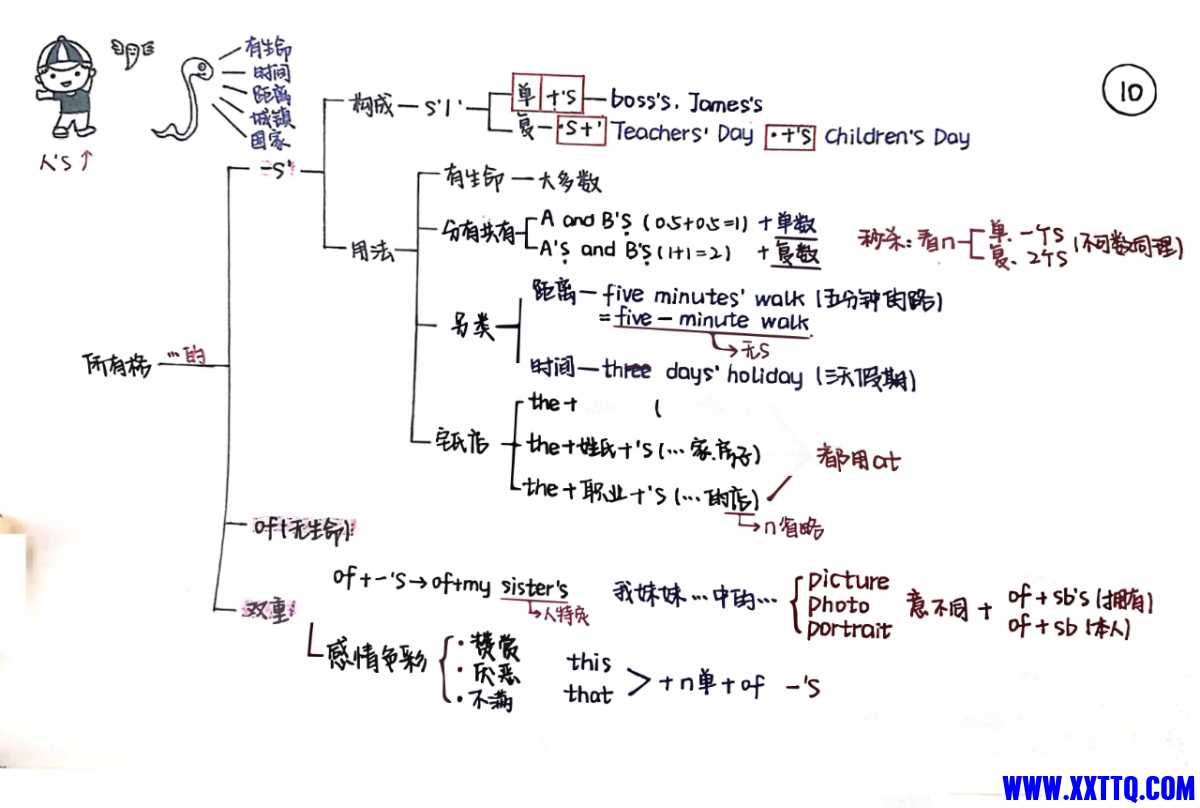 有生命
时间
距离
城镇
国家
人's ↑
10
-s'
构成 — s'/'
单 +'s — boss's. James's
复 — ·s+' Teachers' Day ·+'s Children's Day
用法
有生命 — 大多数
分有共有
A and B's (0.5+0.5=1) + 单数
A's and B's (1+1=2) + 复数
秒杀:看n
单. 一个s
复. 2个s
(不可数同理)
另类
距离 — five minutes' walk (五分钟的路)
= five - minute walk
→无s
时间 — three days' holiday (三天假期)
所有格 …的
宅氏店
the + (
the + 姓氏 + 's (… 家.房子)
the + 职业 + 's (… 的店)
→n省略
都用at
of (无生命)
双重
of + -'s → of+my sister's
→人特定
我妹妹…中的…
picture
photo
portrait
意不同 +
of + sb's (拥有)
of + sb (本人)
感情色彩
· 赞赏
· 厌恶
· 不满
this
that
> + n单 + of -'s
WWW.XXTTQ.COM